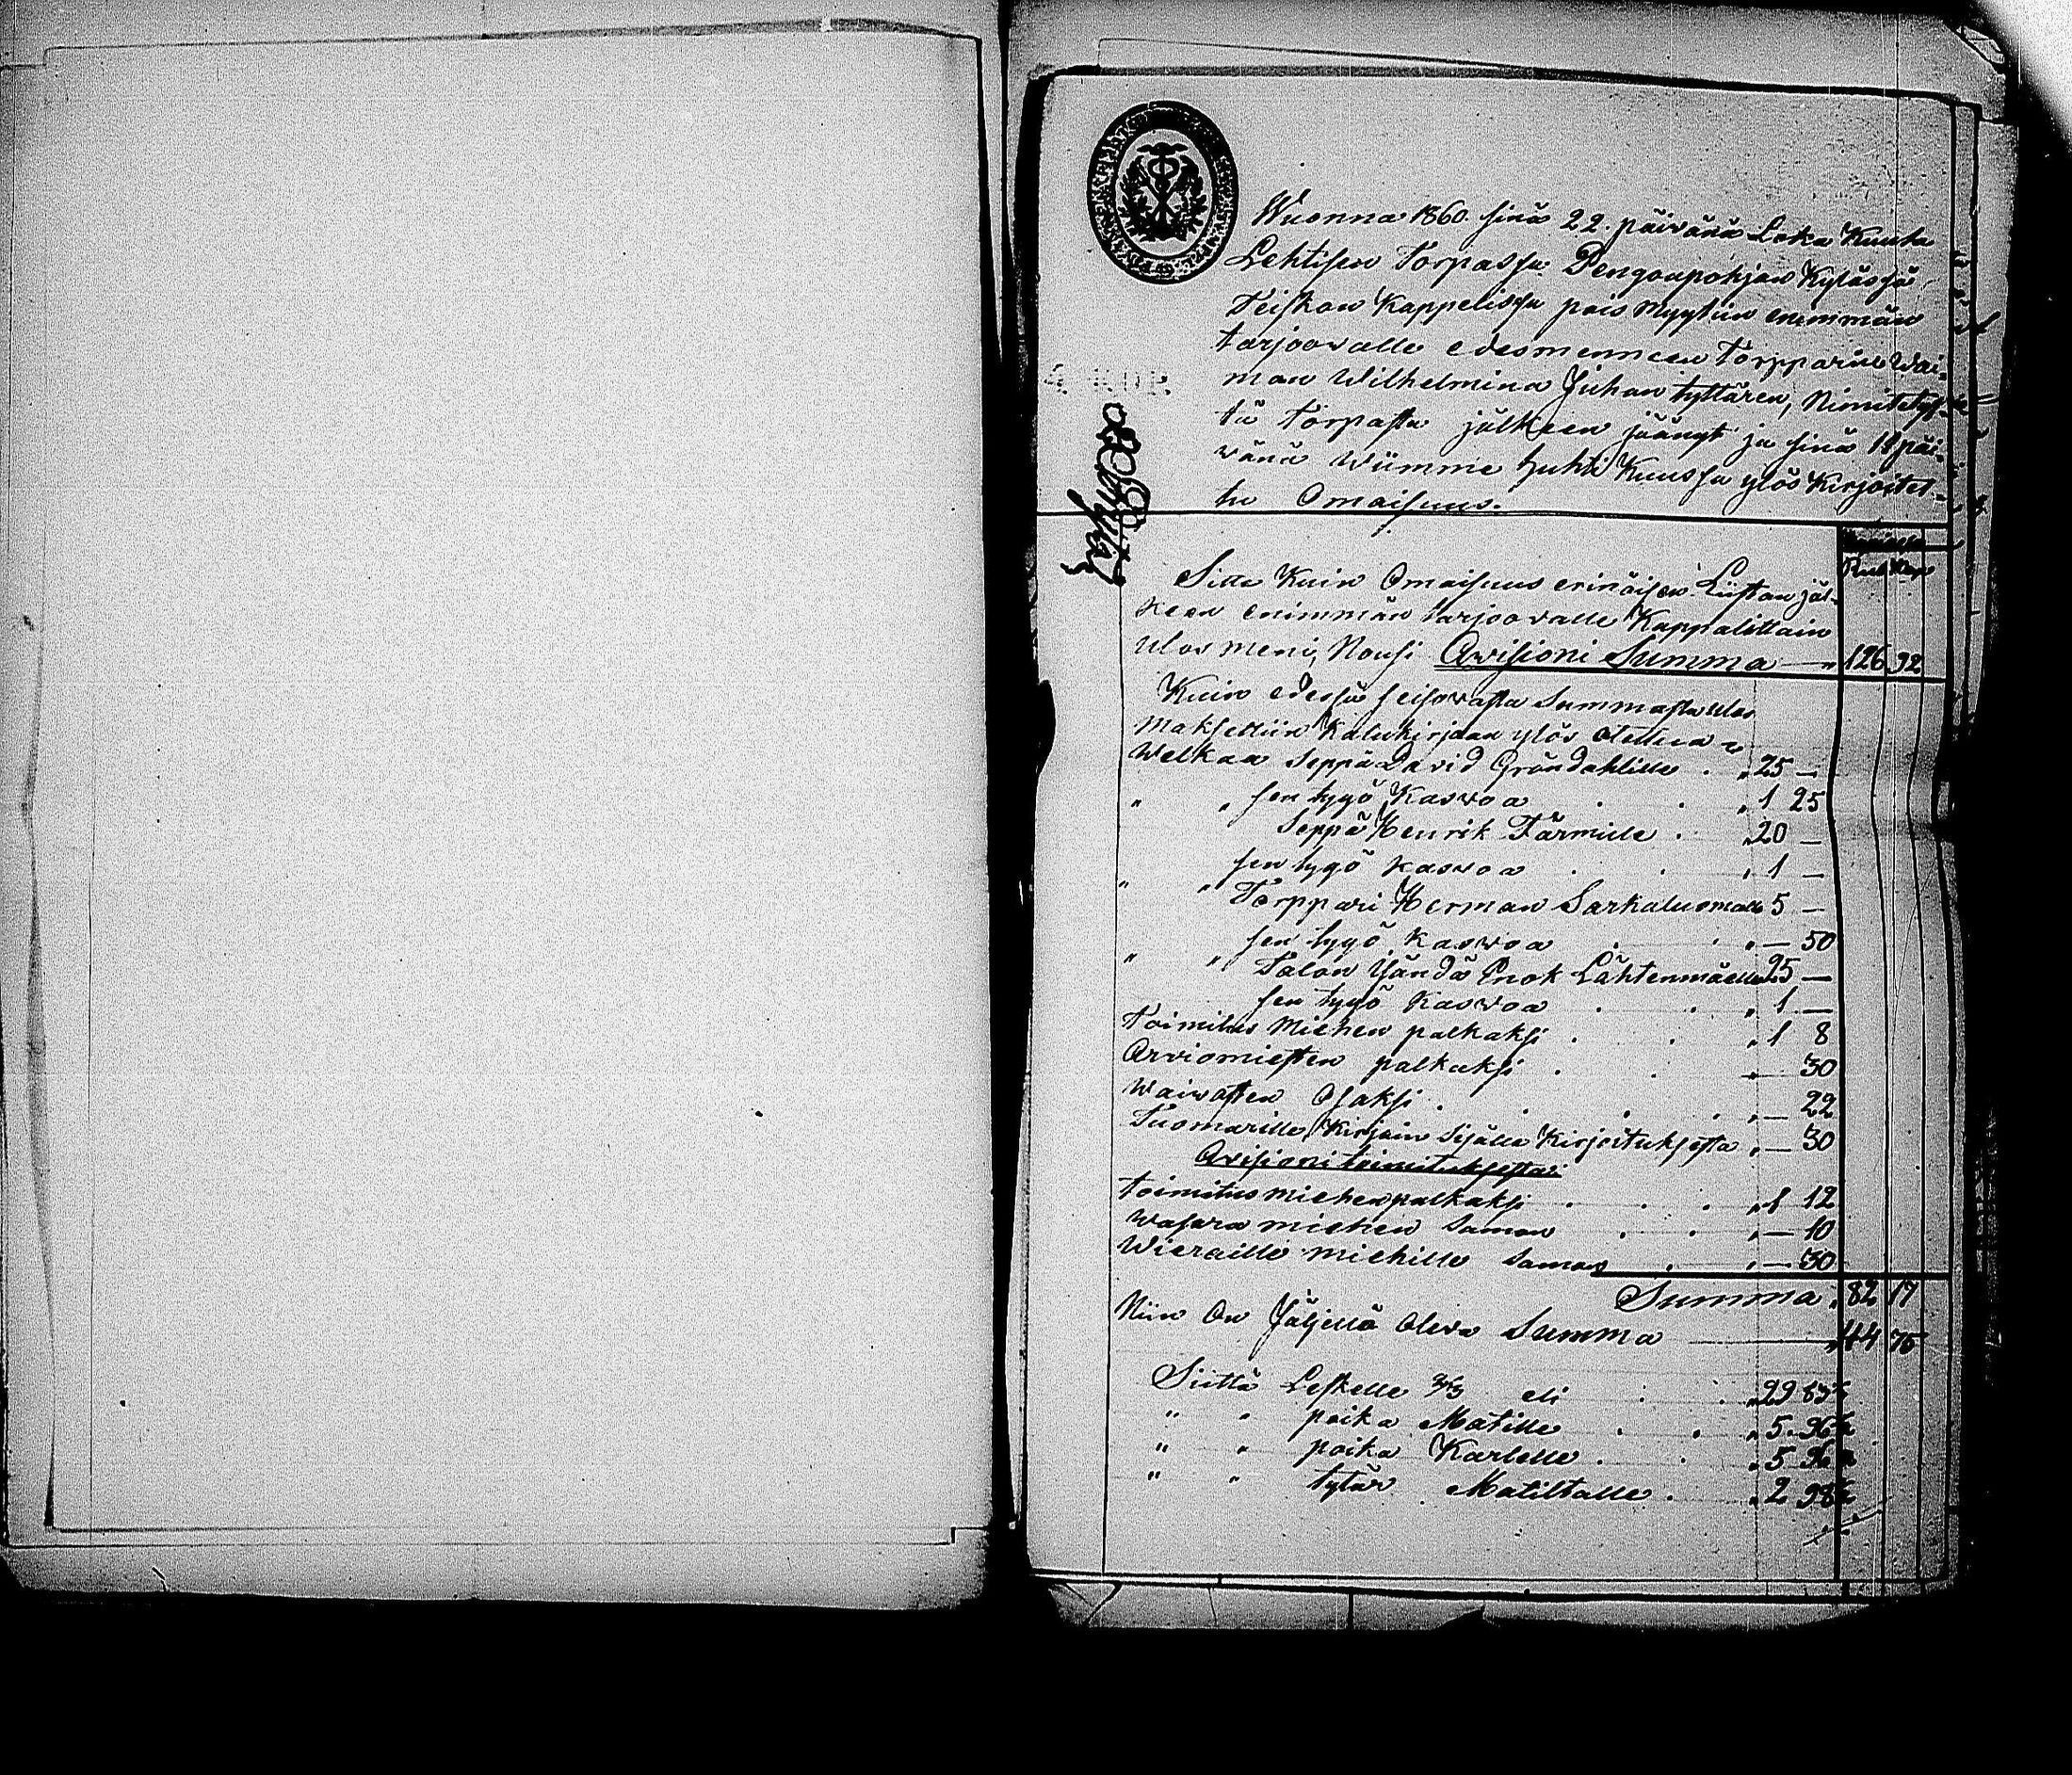 Wuonna 1860 sinä 22. päivänä Loka Kuuta
Lehtisen Torpassa Pengonpohjan Kylässä
Teiskon Kappelissa pois Myytiin enimmän
tarjoovalle edesmenneen Torpparin Wai-
mon Wilhelmina Juhan tyttären, Nimitetys-
tä Torpasta jälkeen jäänyt ja sinä 18 päi-
vänä Wiimme huhti Kuussa ylös Kirjoitet-
tu Omaisuus.
4 KOP.
Rub Kop
Sitte Kuin Omaisuus erinäisen Liistan jäl-
keen enimmän tarjoovalle Kappalittain
ulos meni, Nousi Ovisioni Summa — „ 126 92
Kuin edessä seisovasta Summasta ulos
Maksettiin Kalukirjaan ylös otettua
Welkaa Seppä David Gröndahlille . „ 25 —
„ „ sen tygö Kasvoa . . „ 1 25
Seppä Henrik Färmille . „ 20 —
sen tygö kasvoa . . „ 1 —
„ „ Torppari Herman Sarkaluomalle 5 —
sen tygö Kasvoa . . „ — 50
„ „ Talon Isändä Enok Lähtenmäelle 25 —
sen tygö Kasvoa . . „ 1 —
Toimitus Miehen palkaksi . . „ 1 8
Arviomiesten palkaksi . . „ — 30
Waivasten Osaksi . . . . „ — 22
Tuomarille Kirjain Sisälle Kirjoituksesta „ — 30
Ovisioni toimituksesta:
toimitus miehen palkaksi . . . „ 1 12
Wasara miehen Saman . . „ — 10
Wieraille miehille Saman . . „ — 30
Summa „ 82 17
Niin On Jäljellä Oleva Summa — „ 44 75
Siittä Leskelle 2/3 eli . . „ 29 83
„ „ poika Matille . . „ 5 96
„ „ poika Karlelle . . „ 5 96
„ „ tytär Matiltalle . „ 2 98